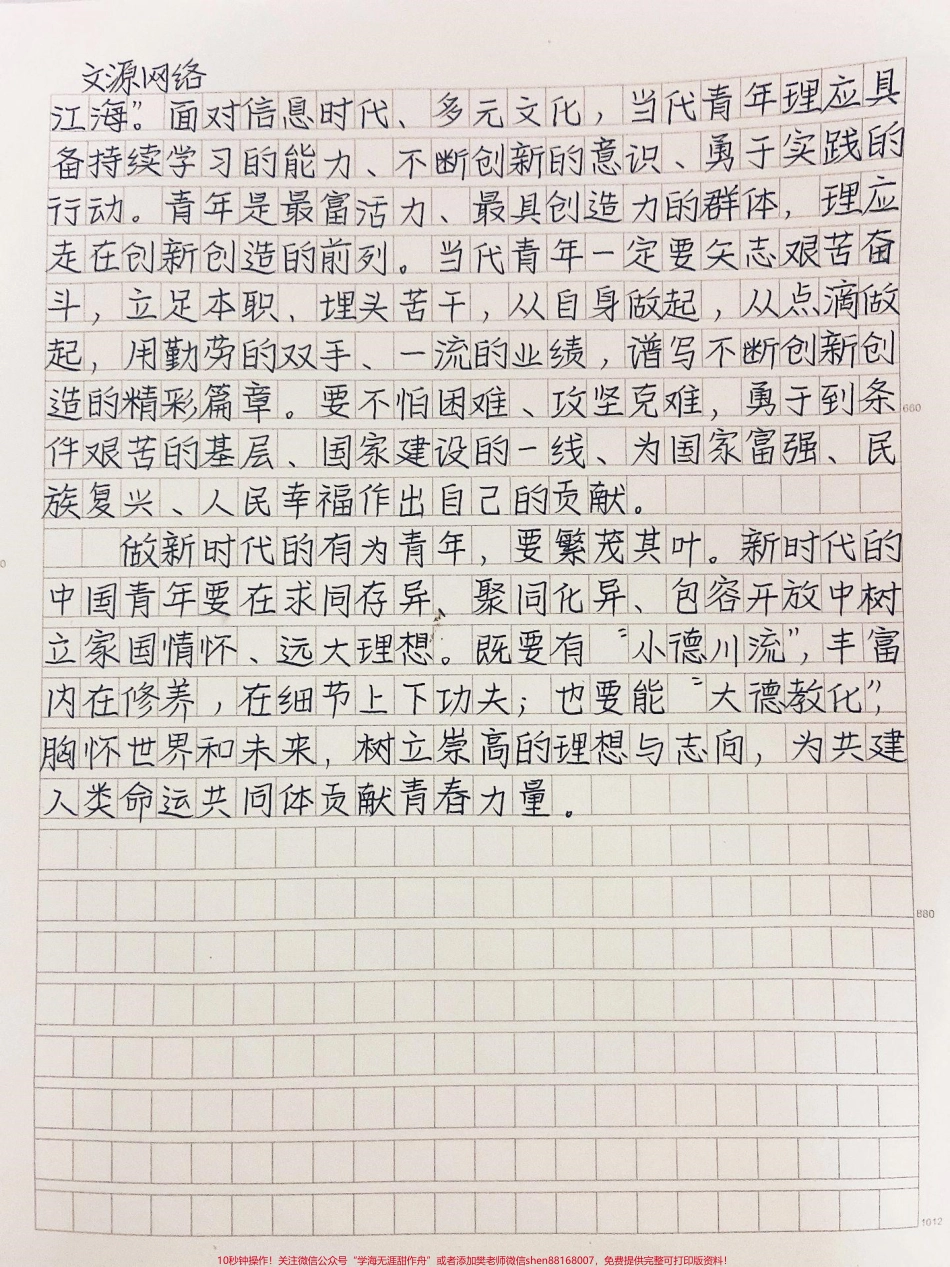 文源网络
江海”。面对信息时代、多元文化，当代青年理应具
备持续学习的能力、不断创新的意识、勇于实践的
行动。青年是最富活力、最具创造力的群体，理应
走在创新创造的前列。当代青年一定要矢志艰苦奋
斗，立足本职、埋头苦干，从自身做起，从点滴做
起，用勤劳的双手、一流的业绩，谱写不断创新创
造的精彩篇章。要不怕困难、攻坚克难，勇于到条
660
件艰苦的基层、国家建设的一线、为国家富强、民
族复兴、人民幸福作出自己的贡献。
做新时代的有为青年，要繁茂其叶。新时代的
0
中国青年要在求同存异、聚同化异、包容开放中树
立家国情怀、远大理想。既要有“小德川流”，丰富
内在修养，在细节上下功夫；也要能“大德教化”，
胸怀世界和未来，树立崇高的理想与志向，为共建
人类命运共同体贡献青春力量。
880
1012
10秒钟操作！关注微信公众号“学海无涯甜作舟”或者添加樊老师微信shen88168007，免费提供完整可打印版资料！